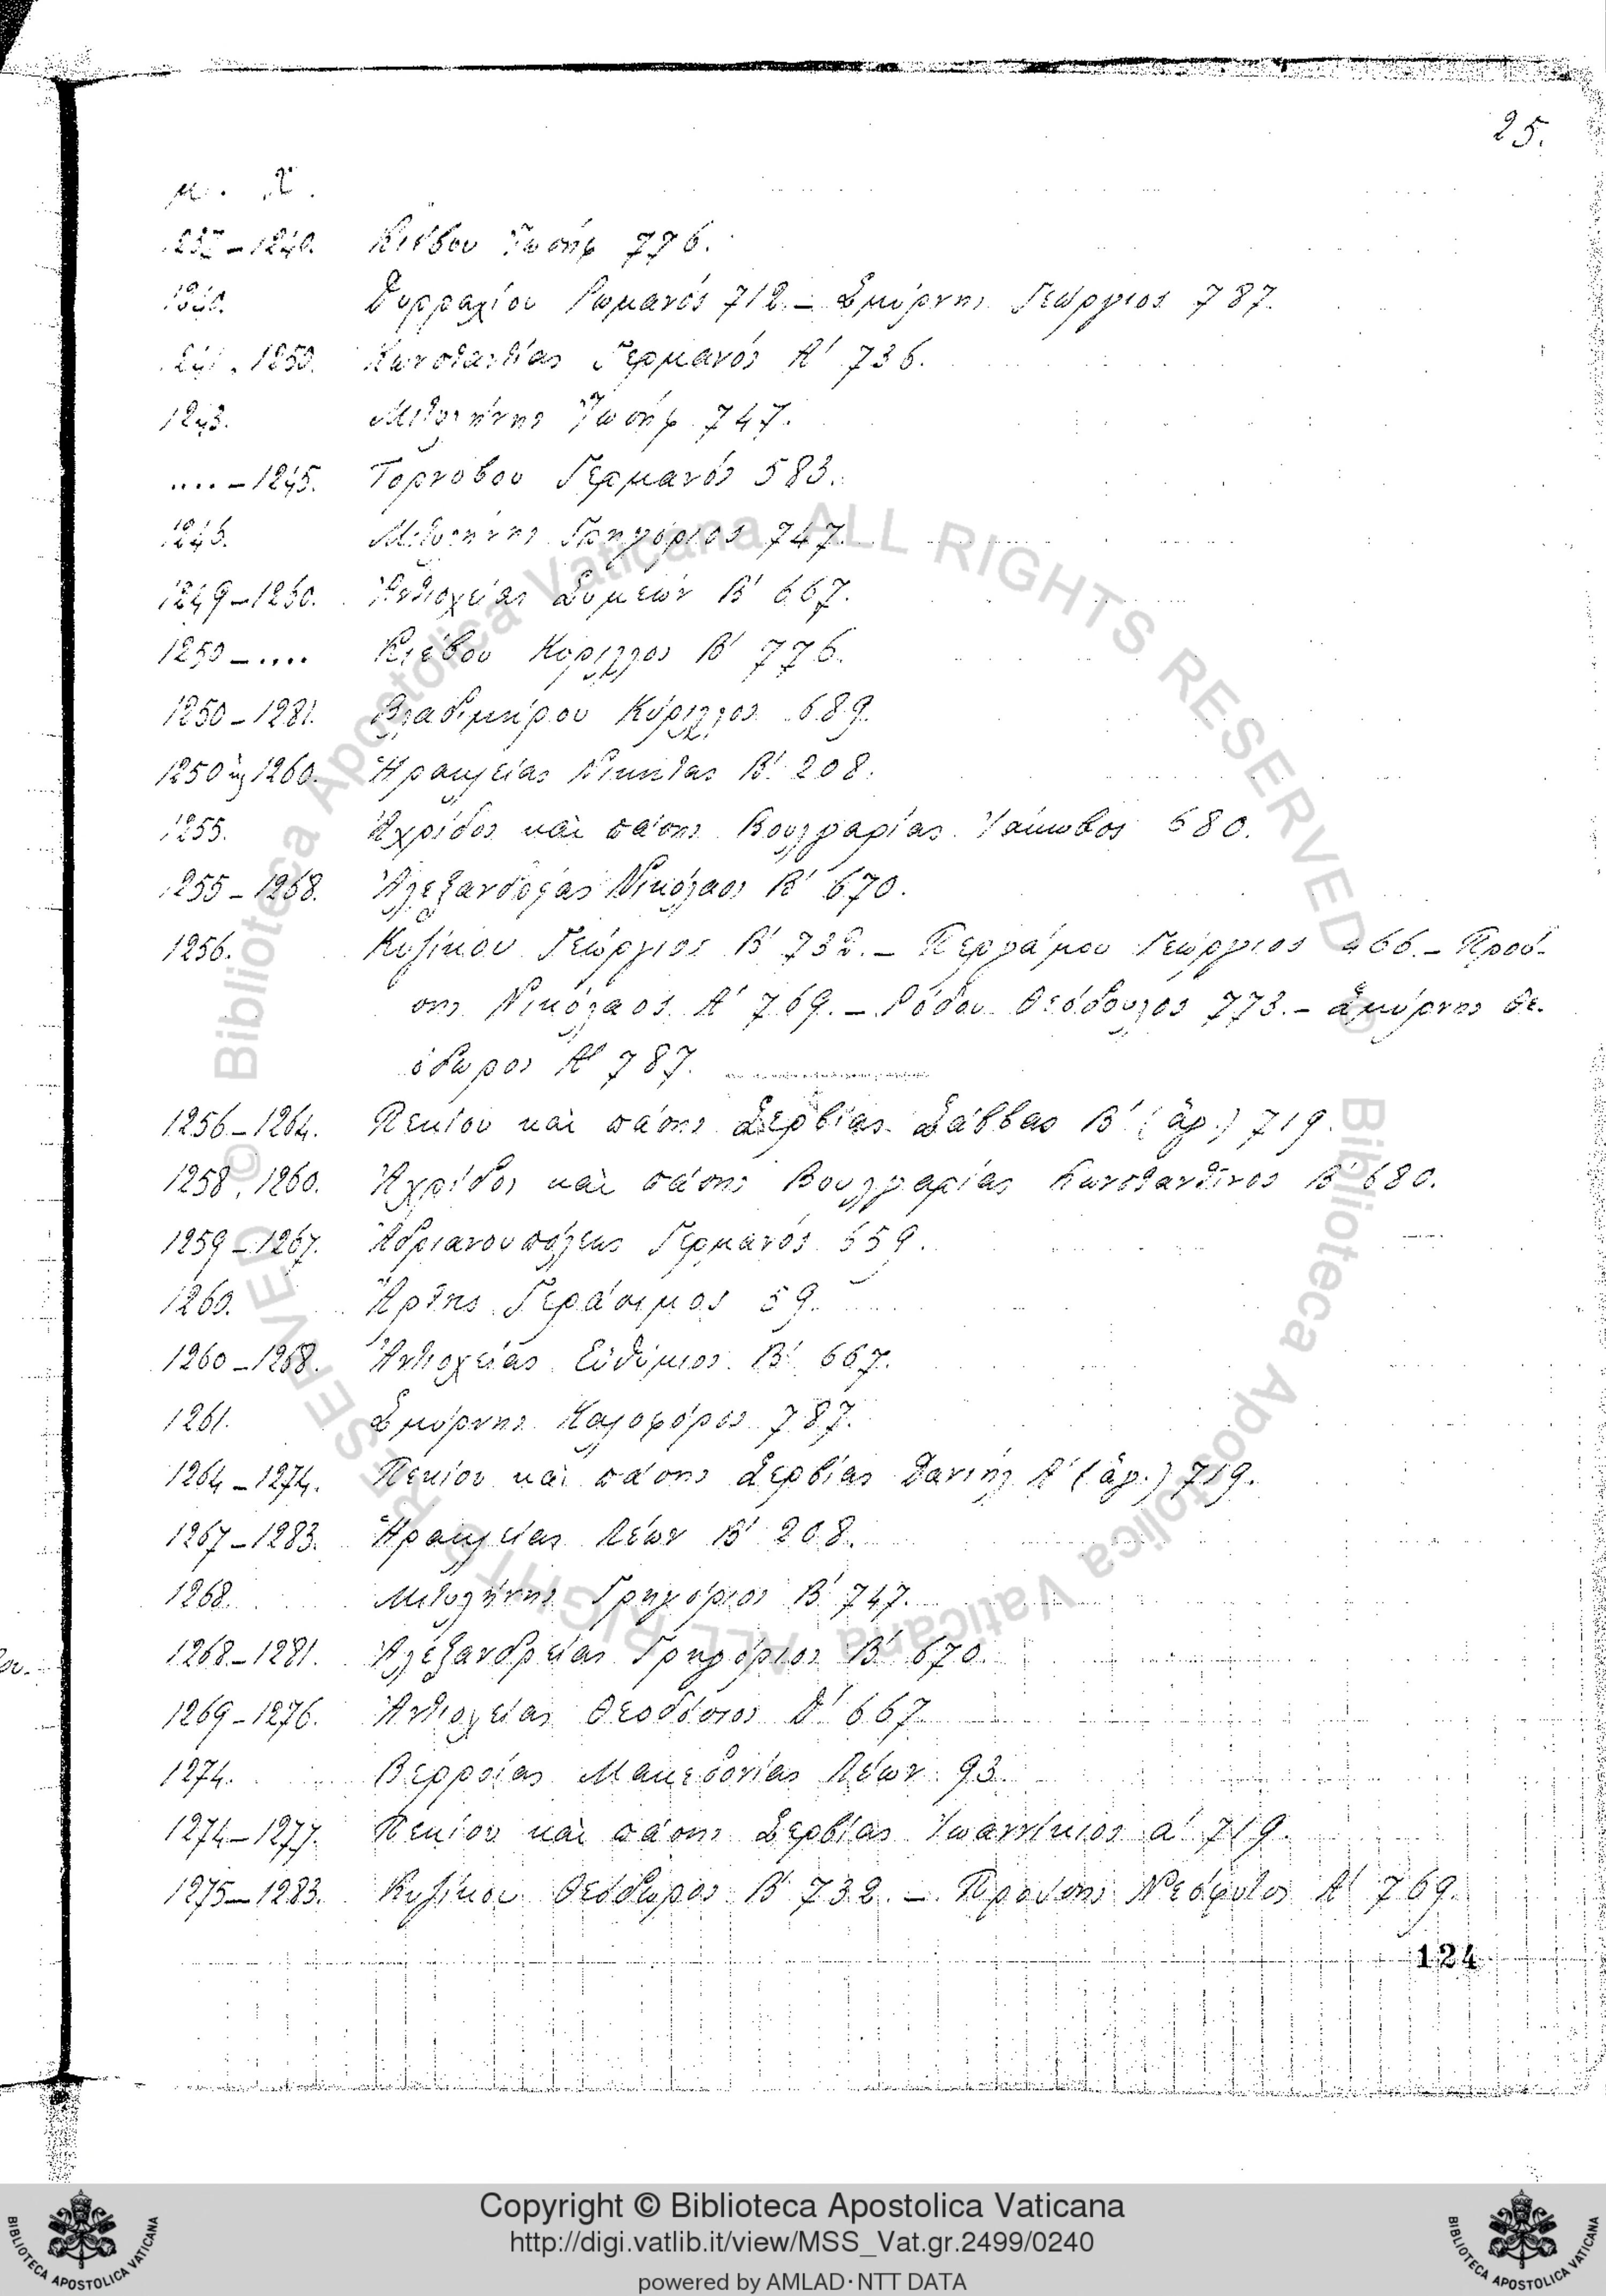 25.
μ. Χ.
1237–1240. Κιέβου Ἰωσήφ 776.
1240. Δυρραχίου Ρωμανός 712.– Σμύρνης Γεώργιος 787.
1250. Κωνσταντίας Γερμανός Α' 736.
1243. Μιτυλήνης Ἰωσήφ 747.
....–1245. Τορνόβου Γερμανός 583.
1246. Μιτυλήνης Γρηγόριος 747.
1249–1260. Ἀντιοχείας Συμεών Β' 667.
1250–.... Κιέβου Κύριλλος Β' 776.
1250–1281. Βλαδιμήρου Κύριλλος 689.
1250 ὡς 1260. Ἡρακλείας Νικήτας Β' 208.
1255. Ἀχρίδος καὶ πάσης Βουλγαρίας Ἰάκωβος 680.
1255–1268. Ἀλεξανδρείας Νικόλαος Β' 670.
1256. Κυζίκου Γεώργιος Β' 732.– Περγάμου Γεώργιος 466.– Πρού-
σης Νικόλαος Α' 769.– Ρόδου Θεόδουλος 773.– Σμύρνης Θε-
όδωρος Α' 787.
1256–1264. Πεκίου καὶ πάσης Σερβίας Σάββας Β' (ἅγ.) 719.
1258, 1260. Ἀχρίδος καὶ πάσης Βουλγαρίας Κωνσταντῖνος Β' 680.
1259–1267. Ἀδριανουπόλεως Γερμανός 659.
1260. Ἄρτης Γεράσιμος 59.
1260–1268. Ἀντιοχείας Εὐθύμιος Β' 667.
1261. Σμύρνης Καλοφόρος 787.
1264–1274. Πεκίου καὶ πάσης Σερβίας Δανιήλ Α' (ἅγ.) 719.
1267–1283. Ἡρακλείας Λέων Β' 208.
1268. Μιτυλήνης Γρηγόριος Β' 747.
1268–1281. Ἀλεξανδρείας Γρηγόριος Β' 670.
1269–1276. Ἀντιοχείας Θεοδόσιος Δ' 667.
1274. Βερροίας Μακεδονίας Λέων 93.
1274–1277. Πεκίου καὶ πάσης Σερβίας Ἰωαννίκιος α' 719.
1275–1283. Κυζίκου Θεόδωρος Β' 732.– Προύσης Νεόφυτος Α' 769.
124
© Biblioteca Apostolica Vaticana ALL RIGHTS RESERVED
© Biblioteca Apostolica Vaticana ALL RIGHTS RESERVED
Copyright © Biblioteca Apostolica Vaticana
http://digi.vatlib.it/view/MSS_Vat.gr.2499/0240
powered by AMLAD·NTT DATA
BIBLIOTECA APOSTOLICA VATICANA
BIBLIOTECA APOSTOLICA VATICANA